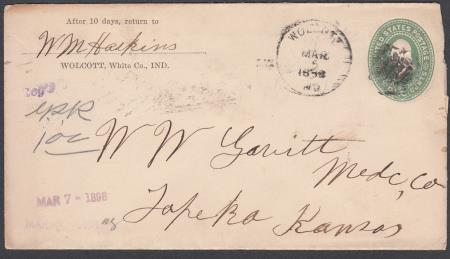 After 10 days, return to
Wm Halkins
WOLCOTT, White Co., IND.
WOLCOTT
MAR
5
1898
IND.
UNITED STATES POSTAGE
10c
W W Gavitt
Medc, Co
Topeka Kansas
MAR 7 - 1898